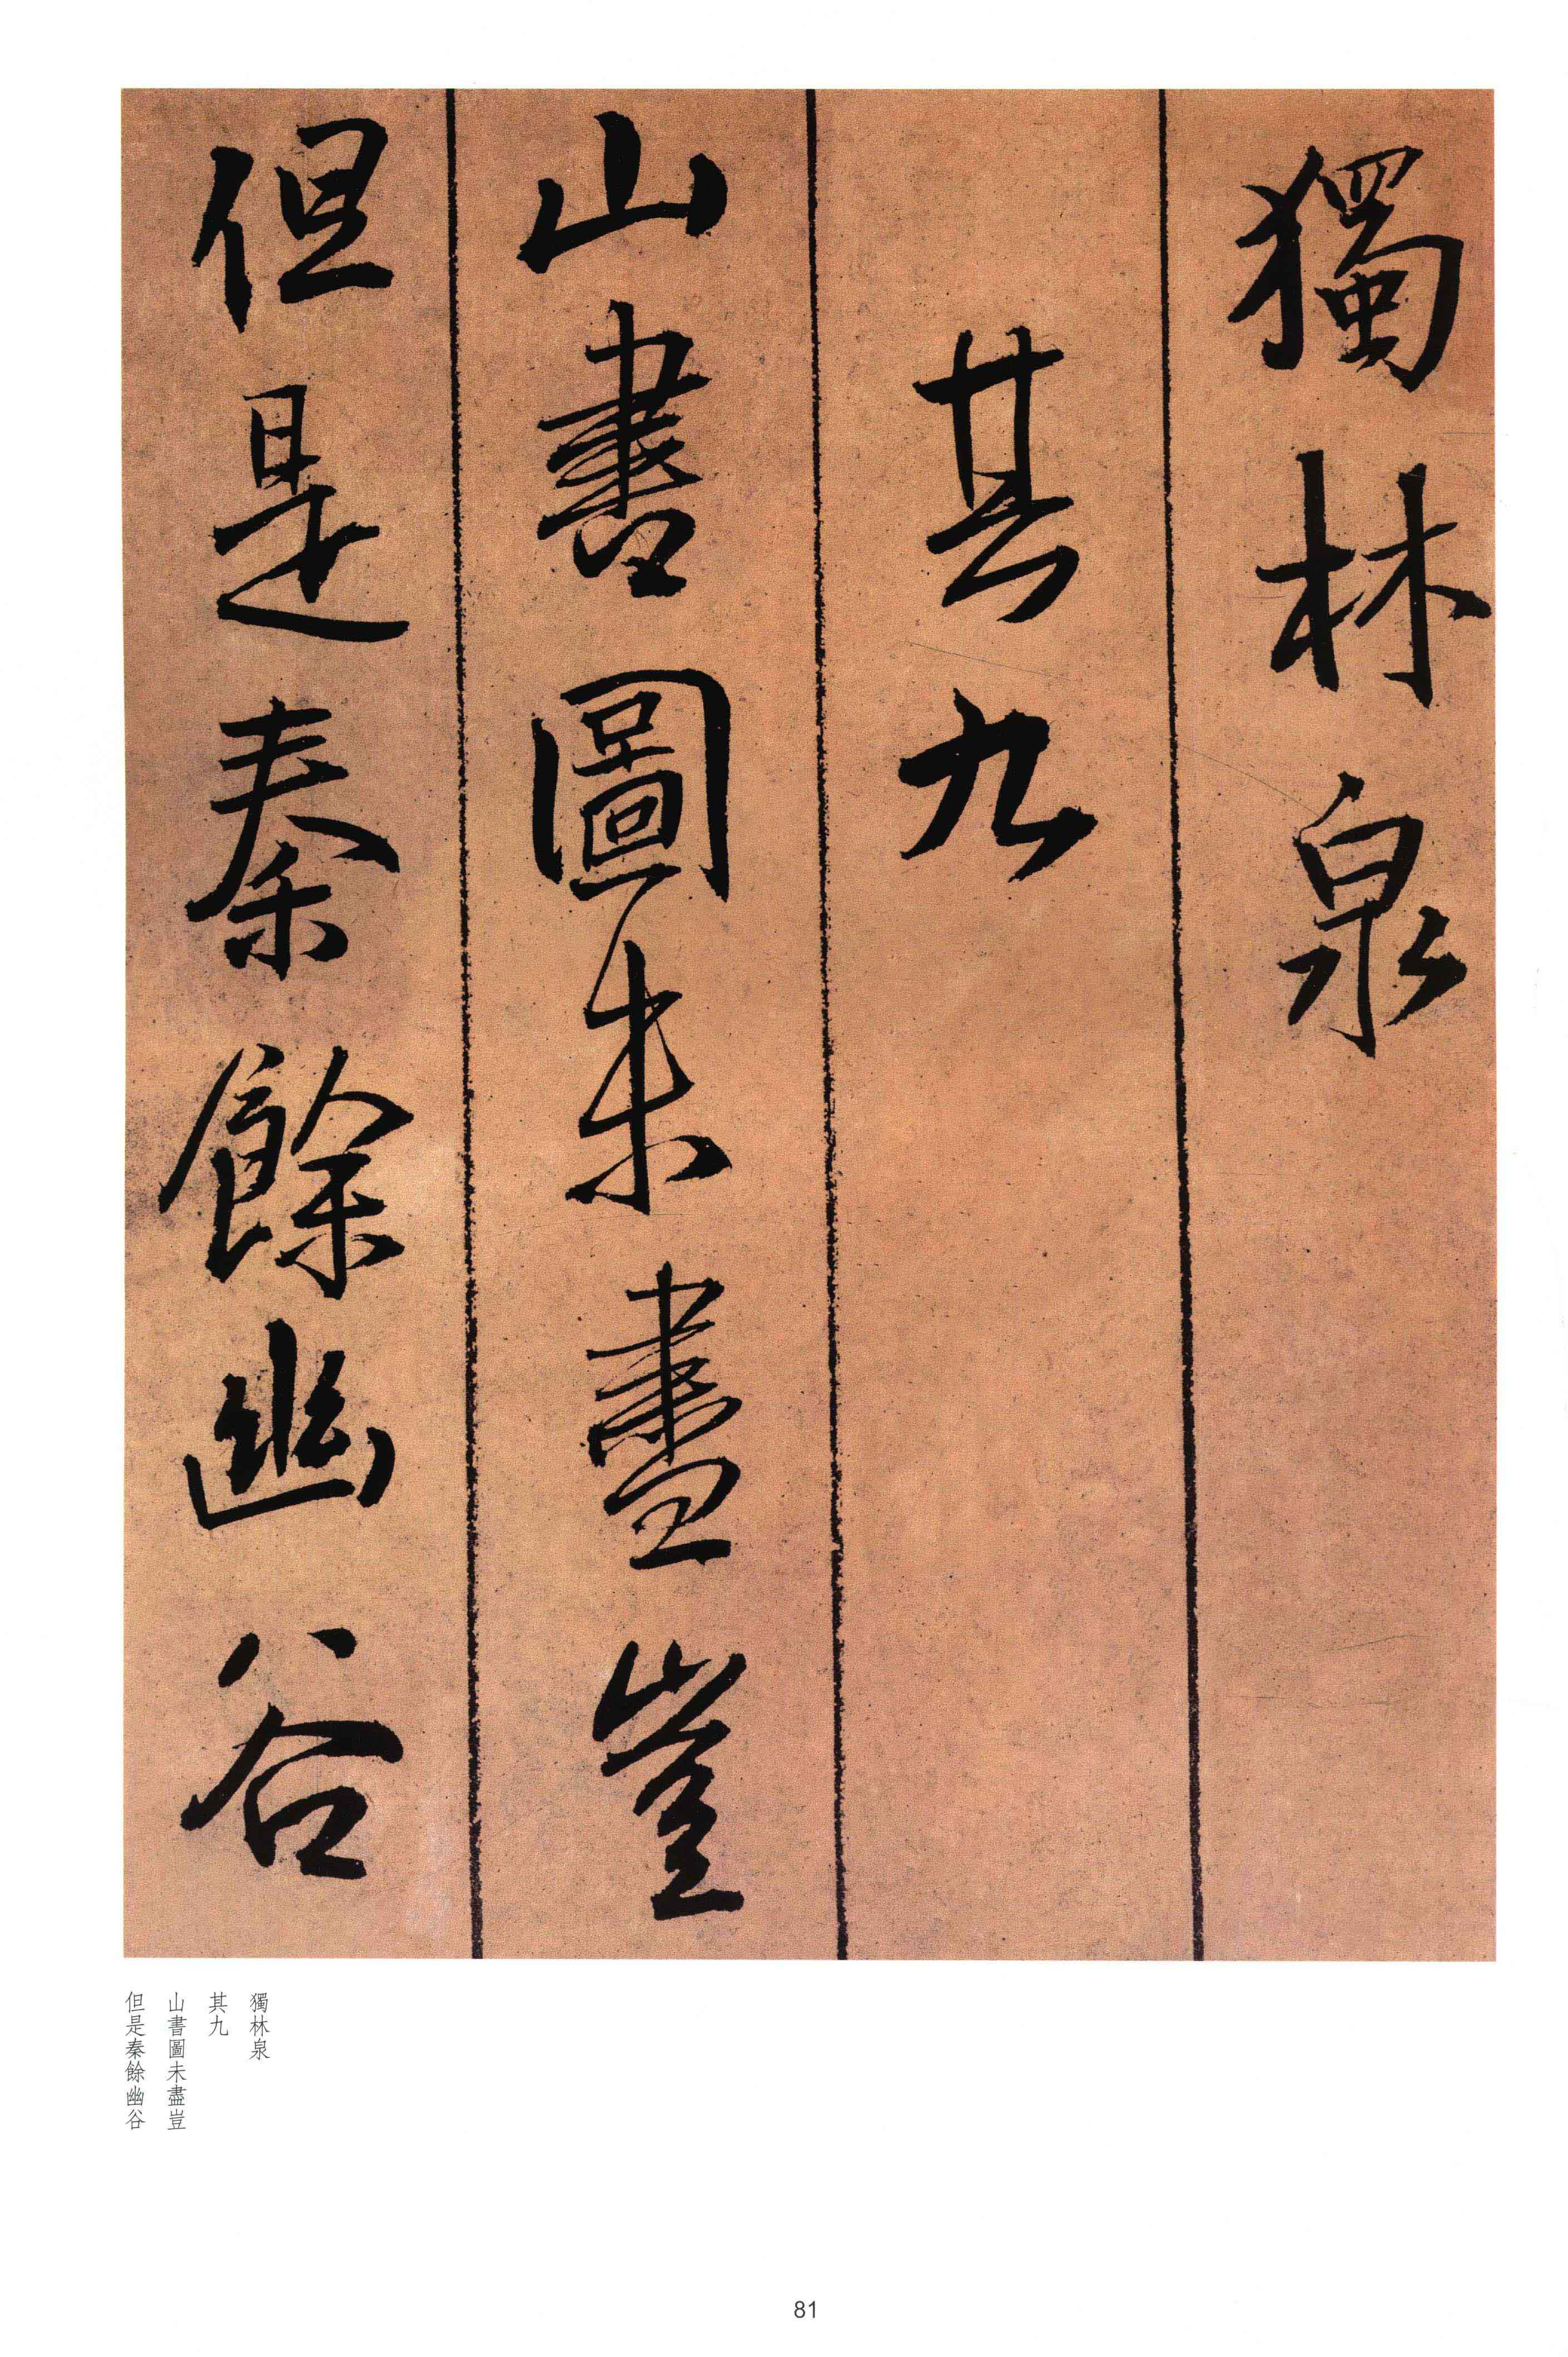 獨林泉
其九
山書圖未盡豈
但是秦餘幽谷
獨林泉
其九
山書圖未盡豈
但是秦餘幽谷
81